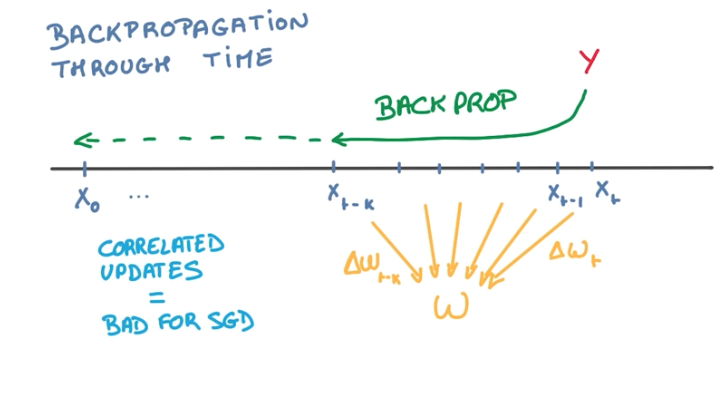 BACKPROPAGATION
THROUGH TIME
Y
BACKPROP
X₀ ... Xₜ₋ₖ Xₜ₋₁ Xₜ
CORRELATED
UPDATES
=
BAD FOR SGD
ΔWₜ₋ₖ ΔWₜ
W